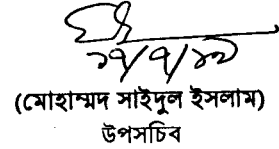 (মোহাম্মদ সাইদুল ইসলাম)
উপসচিব